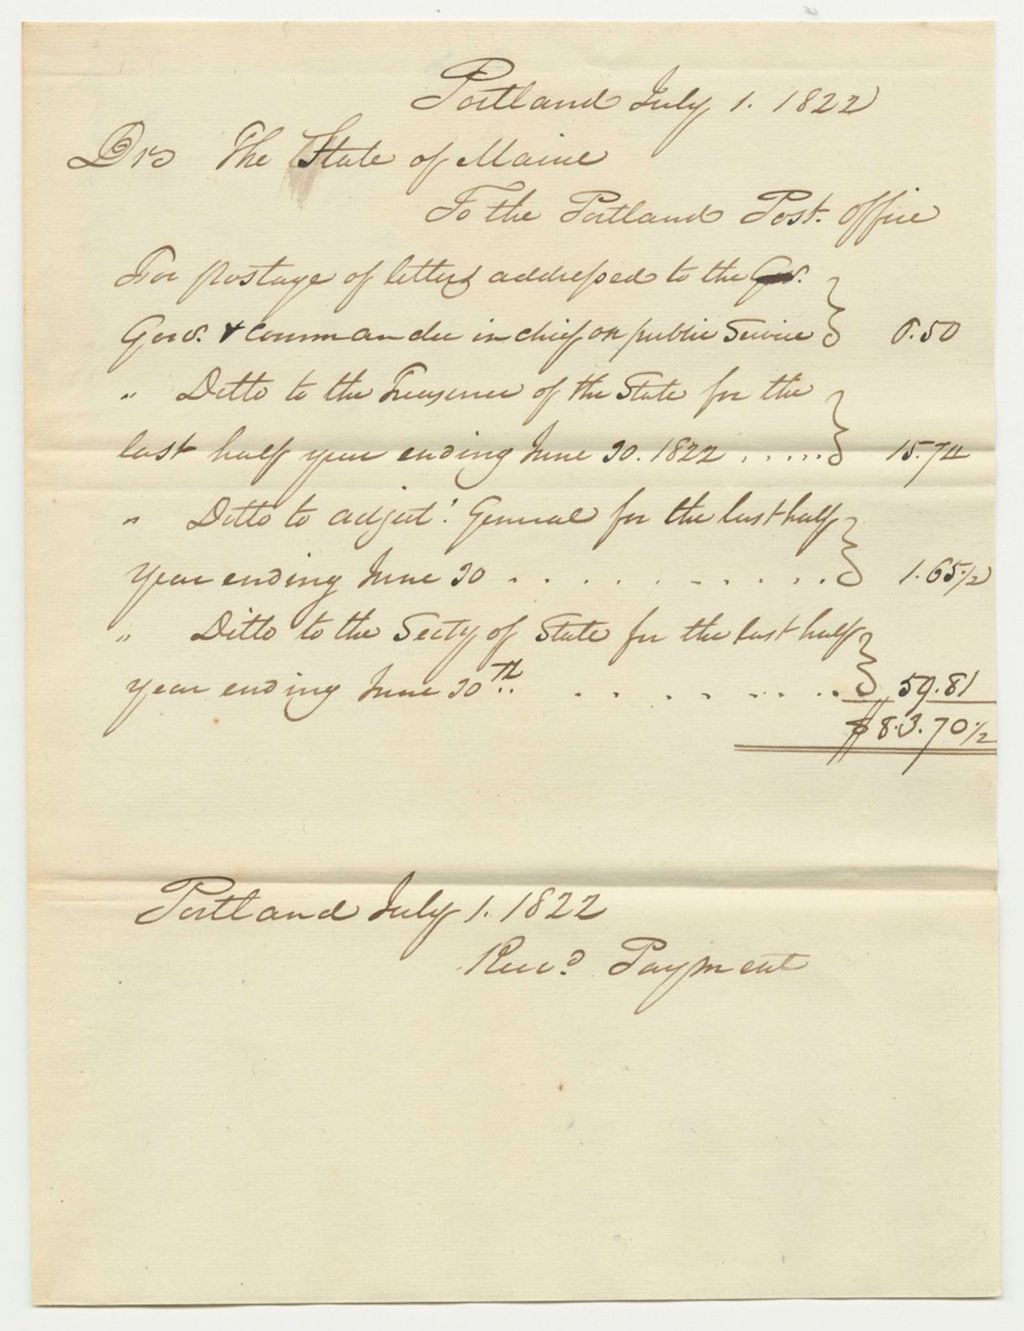 Portland July 1. 1822
Drs The State of Maine
To the Portland Post. Office
For postage of letters addressed to the Gov.
Gov. & Commander in chief on public Service } 6.50
" Ditto to the Treasurer of the State for the
last half year ending June 30. 1822 ..... } 15.74
" Ditto to adjut. General for the last half
Year ending June 30 . . . . . . . . . . . } 1.65 1/2
" Ditto to the Secty of State for the last half
year ending June 30th . . . . . . . . . } 59.81
$83.70 1/2
Portland July 1. 1822
Recd. Payment